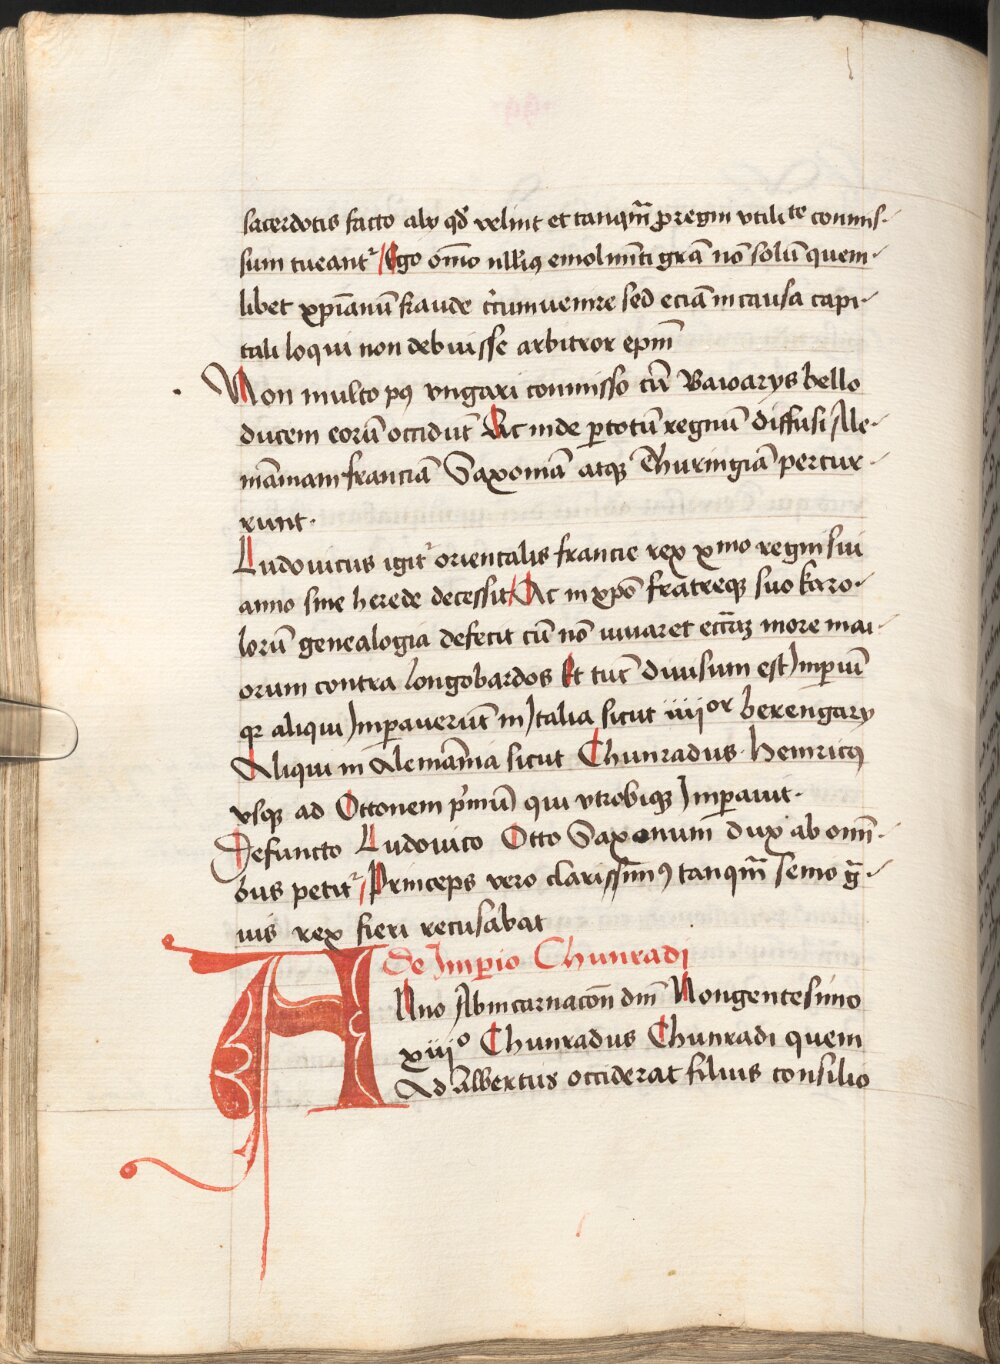 sacerdotis facto alij qd̃ velint et tanqm̃ pro regni vtilite commis-
sum tueant᷑ Ego om̃o nulliꝰ emolum̃ti gr̃a nō solū quem-
libet xp̄ianū fraude c̃cumuenire sed eciam in causa capi-
tali loqui non debuisse arbitror ep̄m
Non multo pꝰ vngari commisso cū Bawarys bello
ducem eorū occidūt Ac inde ꝑ totū regnū diffusi Ale-
māniam franciā Saxoniā atqꝫ Thuringiā percur-
runt.
Ludouicus igit᷑ orientalis francie rex xmo regni sui
anno sine herede decessit Ac in xp̄o fratreqꝫ suo karo-
lorū genealogia defecit cū nō iuuaret eccāꝫ more mai-
orum contra longobardos Et tūc diuisum est Imꝑiū
qꝛ aliqui Imꝑauerūt in Italia sicut iiijor berengary
Aliqui in Alemānia sicut Chunradus henricꝰ
vsqꝫ ad Ottonem p̃mū qui vtrobiqꝫ Imꝑauit.
Defuncto Ludouico Otto Saxonum dux ab omī-
bus petit᷑ Princeps vero clarissimꝰ tanqm̃ senio g̃-
uis rex fieri recusabat
de Imꝑio Chunradi
ANno Ab incarnacōn dm̄ Nongentesimo
xiijo Chunradus Chunradi quem
Adalbertus occiderat filius consilio